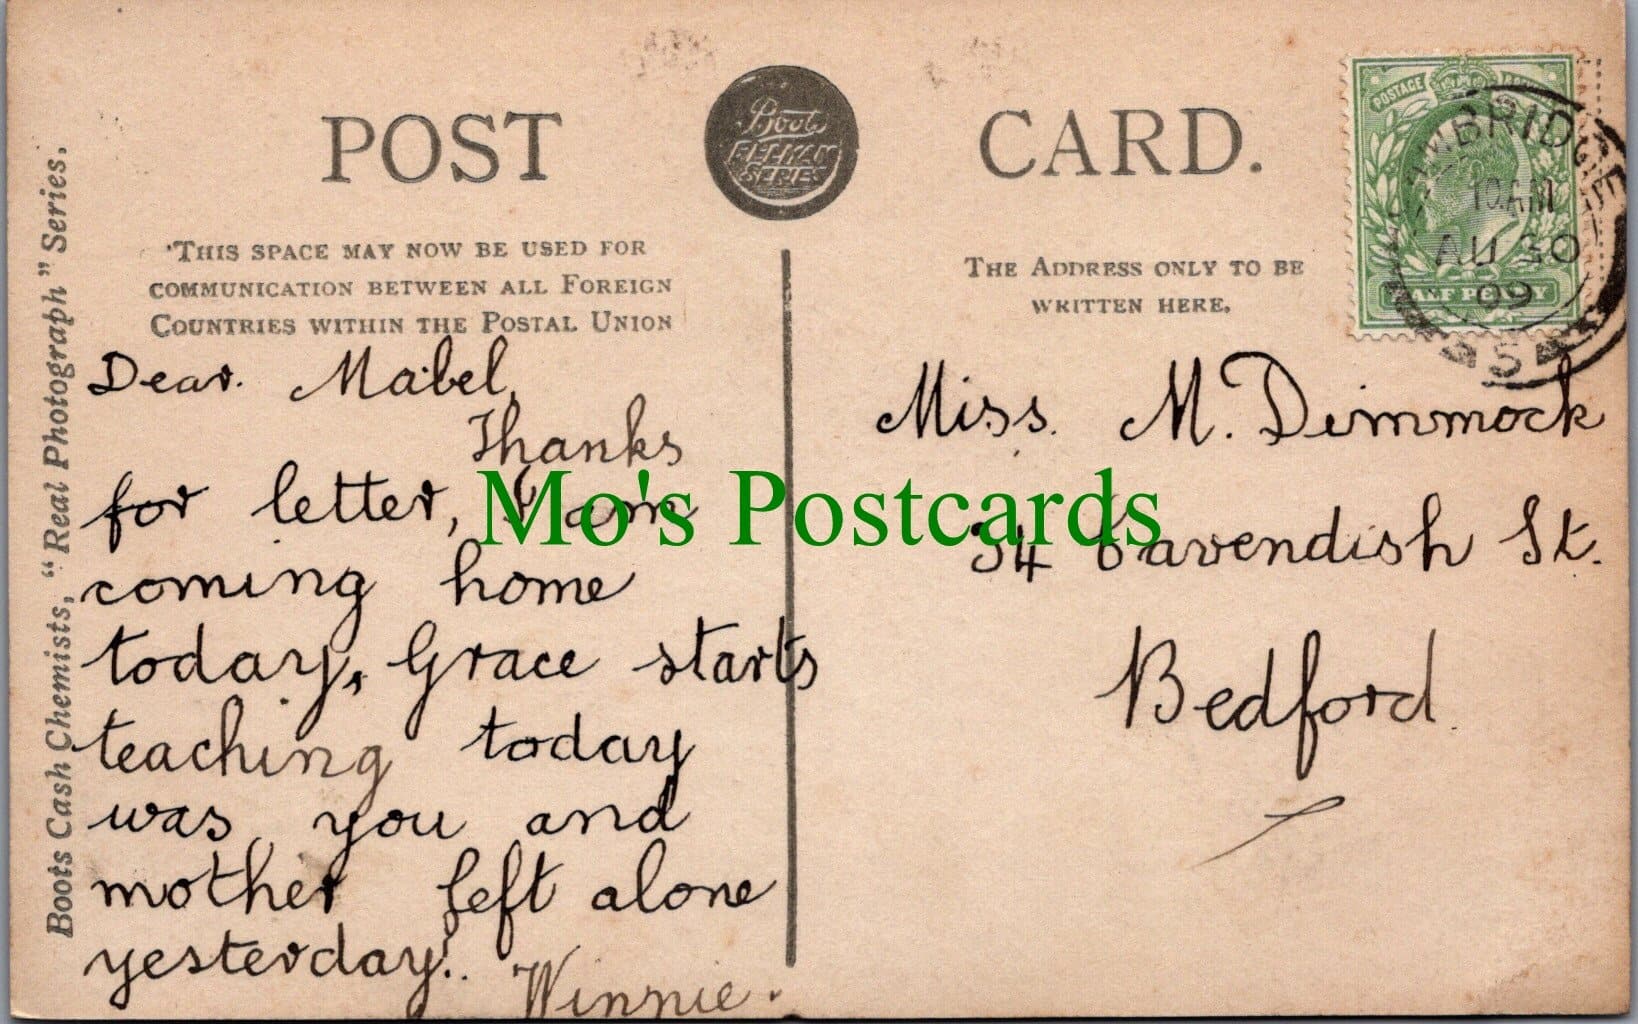 POST CARD.
Boots
PELICAN
SERIES
THIS SPACE MAY NOW BE USED FOR
COMMUNICATION BETWEEN ALL FOREIGN
COUNTRIES WITHIN THE POSTAL UNION
Dear. Mabel,
Thanks
for letter, I am
coming home
today, Grace starts
teaching today
was you and
mother left alone
yesterday?..
Winnie.
Boots Cash Chemists, "Real Photograph" Series.
THE ADDRESS ONLY TO BE
WRITTEN HERE.
Miss. M. Dimmock
34 Cavendish St.
Bedford.
POSTAGE
HALF PENNY
10 AM
AU 30
09
S
Mo's Postcards